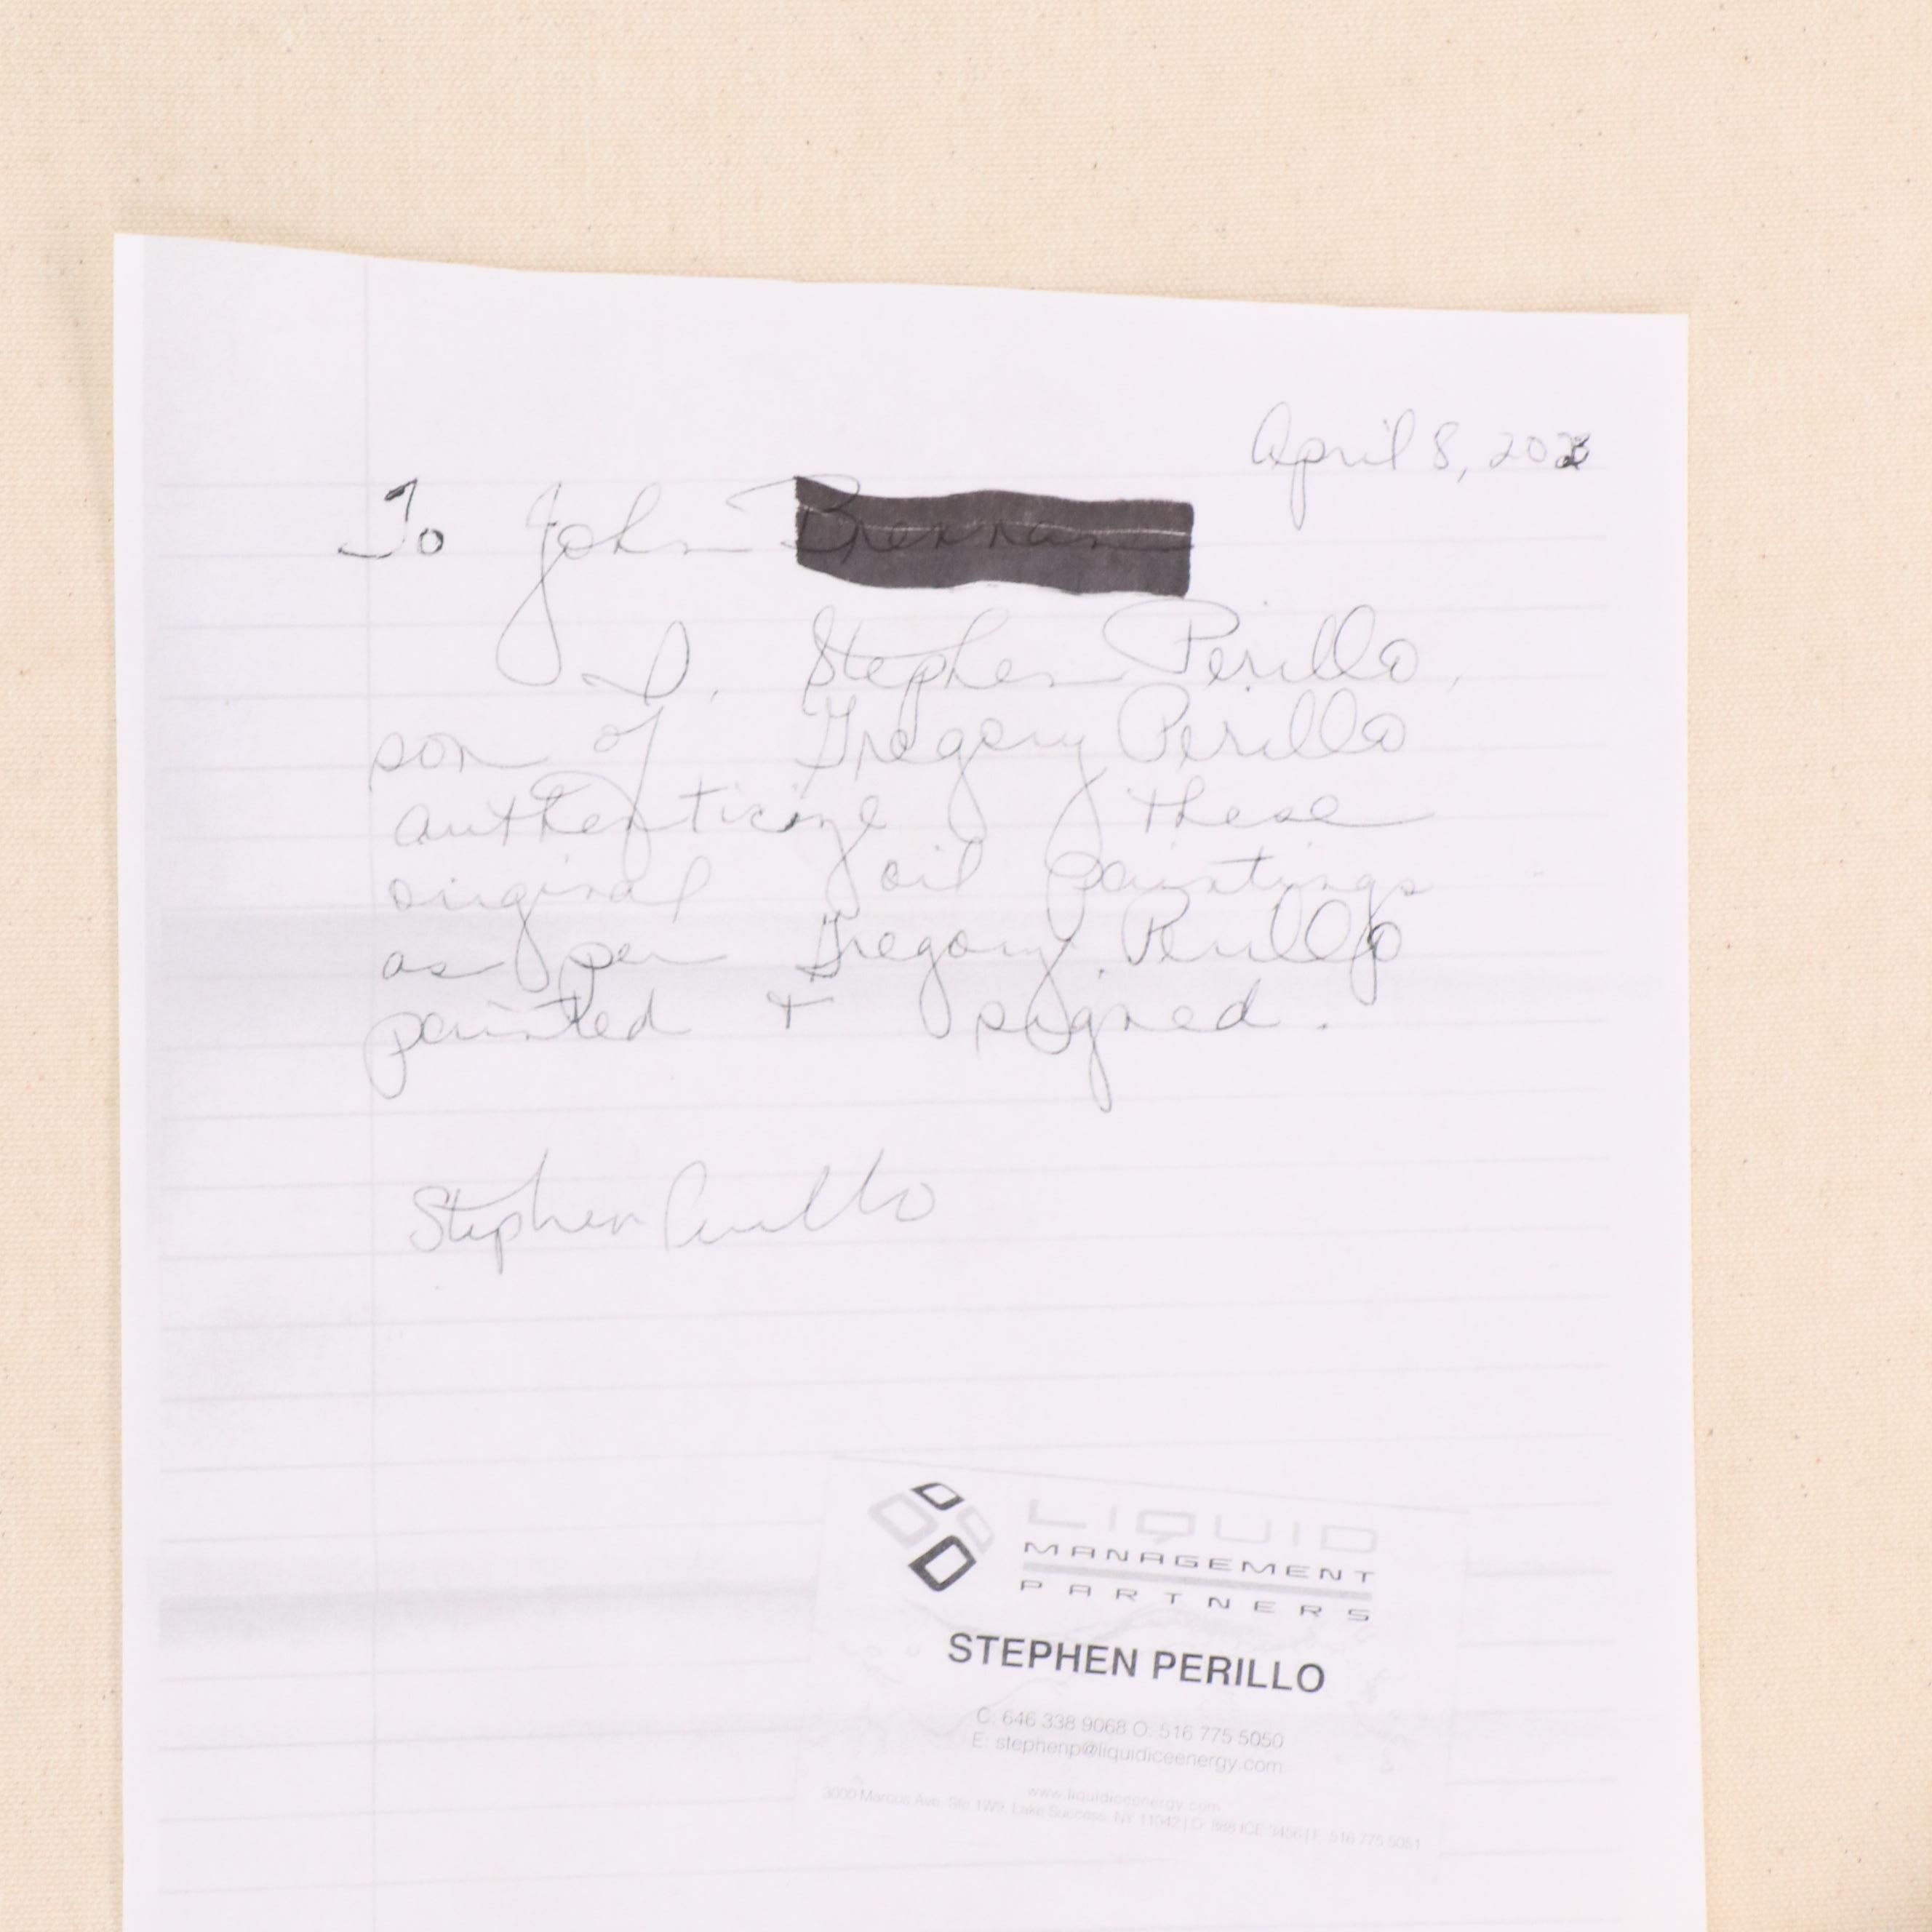 April 8,
To John
I, Stephen Perillo,
son of Gregory Perillo
authenticize these
original oil paintings
as per Gregory Perillo
painted + signed.
Stephen Perillo
LIQUID
MANAGEMENT
PARTNERS
STEPHEN PERILLO
C: 646 338 9068 O: 516 775 5050
E: stephenp@liquidiceenergy.com
www.liquidiceenergy.com
3000 Marcus Ave. Ste. 1W9, Lake Success, NY 11042 | O: 888 ICE-3456 | F: 516 775 5051